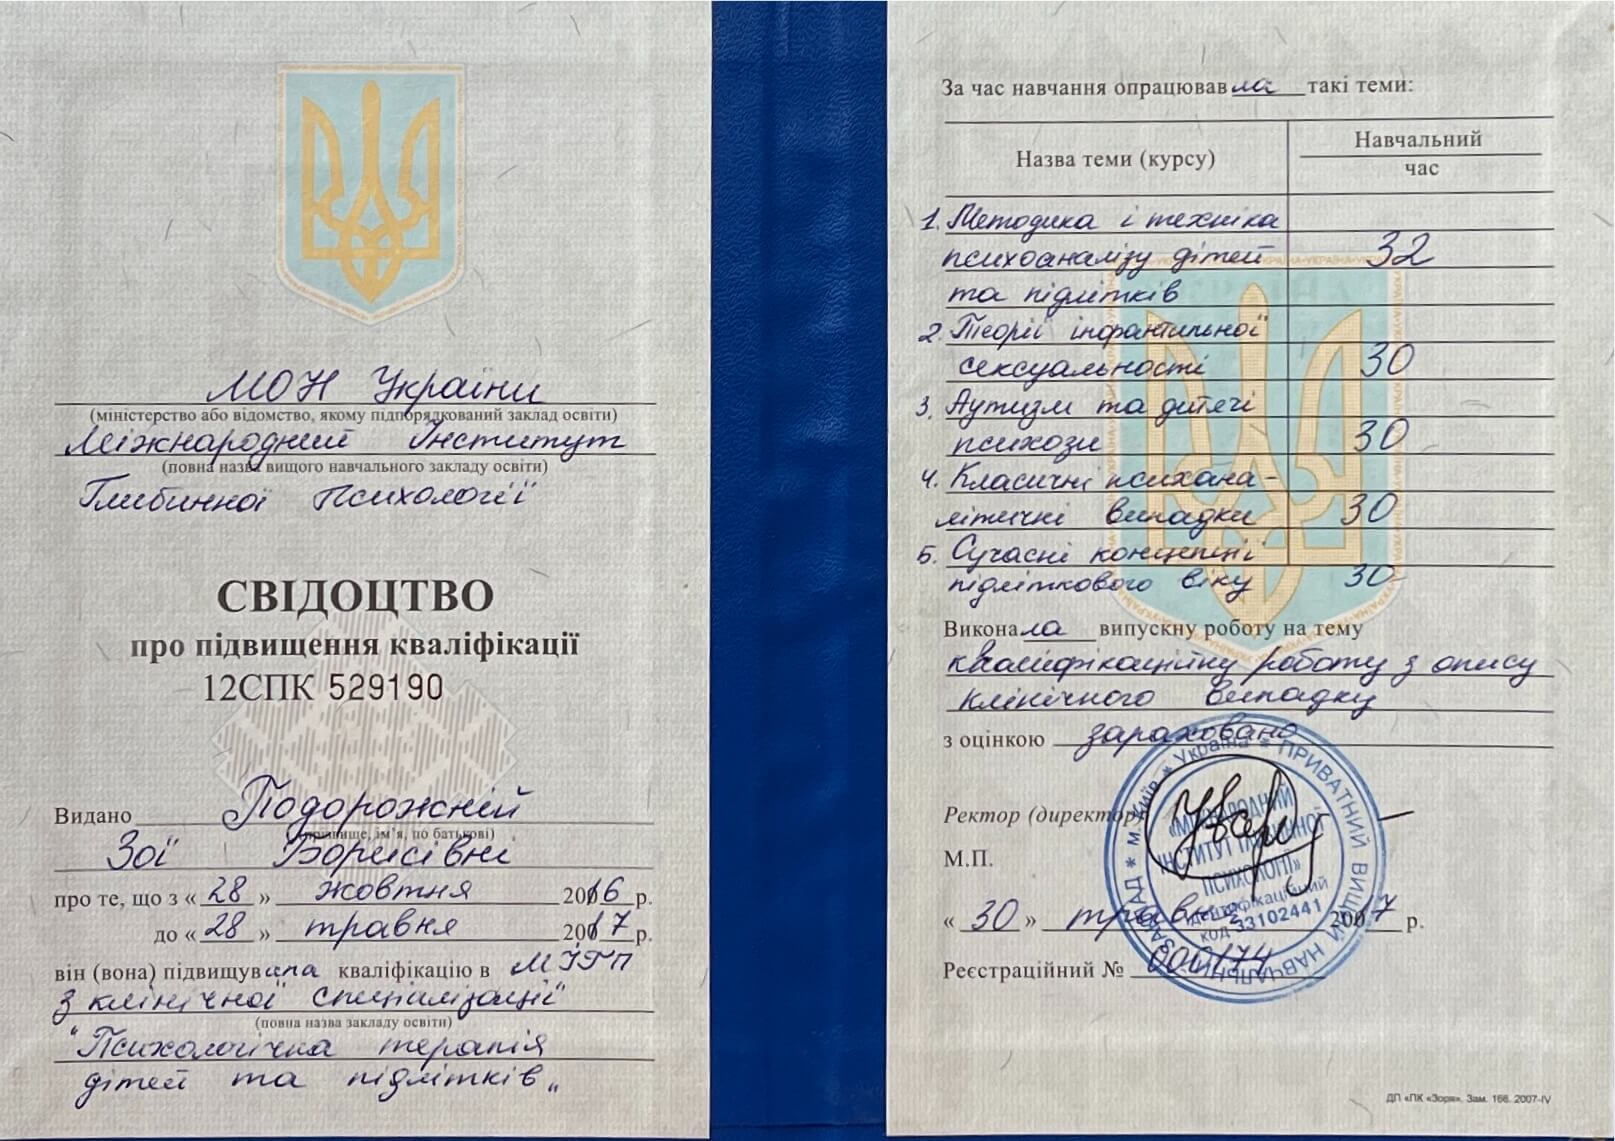 МОН України
(міністерство або відомство, якому підпорядкований заклад освіти)
Міжнародний Інститут
(повна назва вищого навчального закладу освіти)
Глибинної Психології
СВІДОЦТВО
про підвищення кваліфікації
12СПК 529190
Видано Подорожній
(прізвище, ім'я, по батькові)
Зої Борисівні
про те, що з « 28 » жовтня 2016 р.
до « 28 » травня 2017 р.
він (вона) підвищувала кваліфікацію в МІГП
з клінічної спеціалізації
(повна назва закладу освіти)
"Психологічна терапія
дітей та підлітків"
За час навчання опрацювавла такі теми:
Назва теми (курсу) Навчальний
час
1. Методика і техніка
психоаналізу дітей 32
та підлітків
2. Теорії інфантильної
сексуальності 30
3. Аутизм та дитячі
психози 30
4. Класичні психана-
літичні випадки 30
5. Сучасні концепції
підліткового віку 30
Виконала випускну роботу на тему
кваліфікаційну роботу з опису
клінічного випадку
з оцінкою зараховано
Ректор (директор)
М.П.
« 30 » травня 2017 р.
Реєстраційний № 000174
* м. Київ * Україна * ПРИВАТНИЙ ВИЩИЙ НАВЧАЛЬНИЙ ЗАКЛАД
«МІЖНАРОДНИЙ
ІНСТИТУТ ГЛИБИННОЇ
ПСИХОЛОГІЇ»
Ідентифікаційний
код 33102441
ДП «ПК «Зоря». Зам. 166. 2007-IV